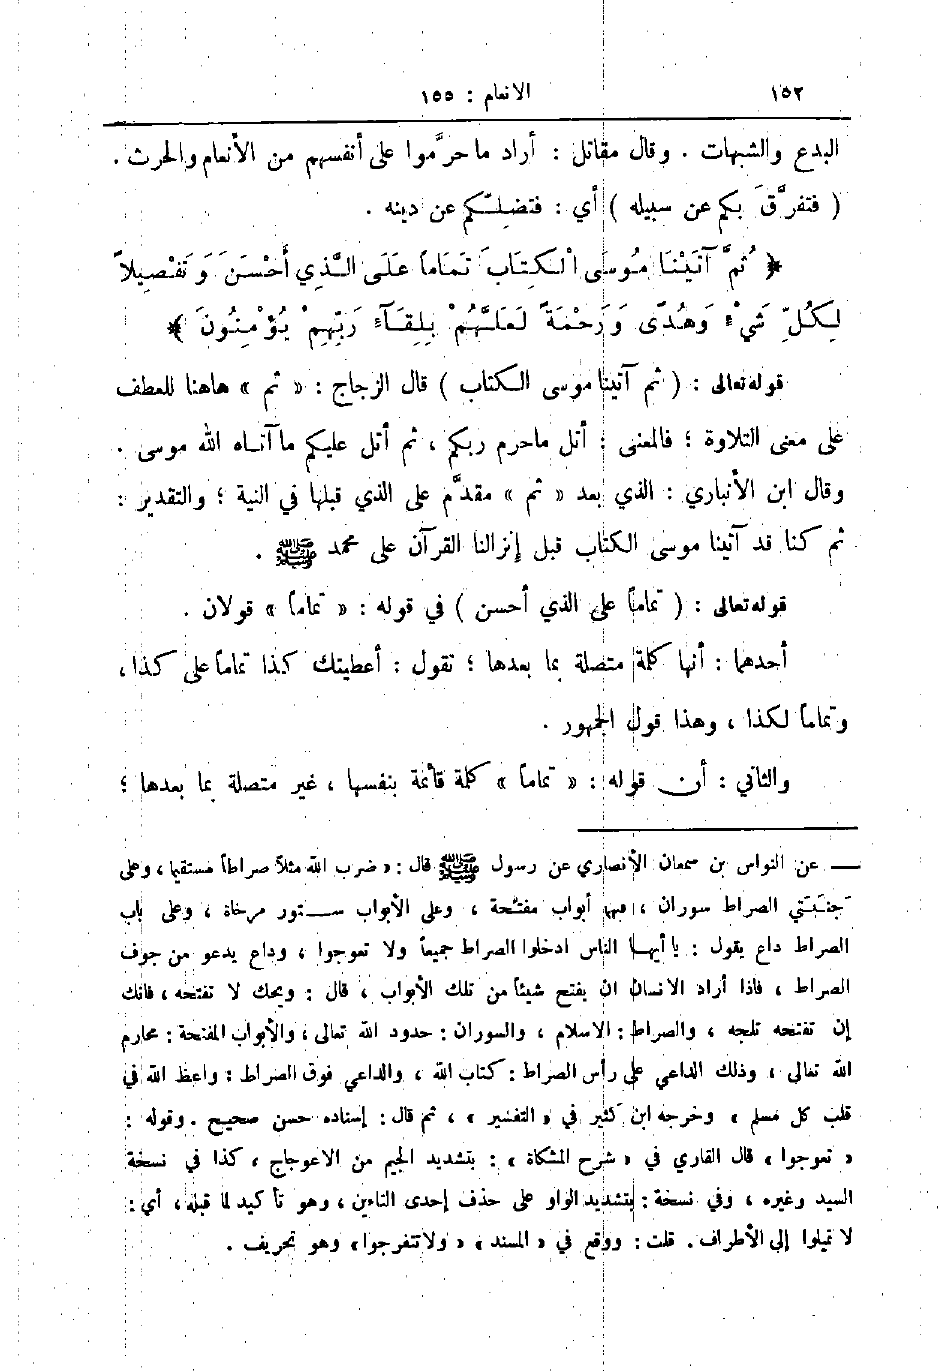 ١٥٢
الانعام : ١٥٥
البدع والشبهات . وقال مقاتل : أراد ما حرَّموا على أنفسهم من الأنعام والحرث .
( فتفرَّقَ بكم عن سبيله ) أي : فتضِلَّكم عن دينه .
﴿ ثُمَّ آتَيْنَا مُوسَى الْكِتَابَ تَمَاماً عَلَى الَّذِي أَحْسَنَ وَتَفْصِيلاً
لِكُلِّ شَيْءٍ وَهُدًى وَرَحْمَةً لَعَلَّهُمْ بِلِقَآءِ رَبِّهِمْ يُؤْمِنُونَ ﴾
قوله تعالى : ( ثم آتينا موسى الكتاب ) قال الزجاج : « ثم » هاهنا للعطف
على معنى التلاوة ؛ فالمعنى : أتل ماحرم ربكم ، ثم أتل عليكم ما آتاه الله موسى .
وقال ابن الأنباري : الذي بعد « ثم » مقدَّم على الذي قبلها في النية ؛ والتقدير :
ثم كنا قد آتينا موسى الكتاب قبل إنزالنا القرآن على محمد ﷺ .
قوله تعالى : ( تماماً على الذي أحسن ) في قوله : « تماماً » قولان .
أحدهما : أنها كلمة متصلة بما بعدها ؛ تقول : أعطيتك كذا تماماً على كذا ،
وتماماً لكذا ، وهذا قول الجمهور .
والثاني : أن قوله : « تماماً » كلمة قائمة بنفسها ، غير متصلة بما بعدها ؛
— عن النواس بن سمعان الأنصاري عن رسول ﷺ قال : « ضرب الله مثلاً صراطاً مستقيما ، وعلى
جنَبَتي الصراط سوران ، فيها أبواب مفتَّحة ، وعلى الأبواب ستور مرخاة ، وعلى باب
الصراط داع يقول : يا أيها الناس ادخلوا الصراط جميعاً ولا تعوجوا ، وداع يدعو من جوف
الصراط ، فاذا أراد الانسان ان يفتح شيئاً من تلك الأبواب ، قال : ويحك لا تفتحه ، فانك
إن تفتحه تلجه ، والصراط : الاسلام ، والسوران : حدود الله تعالى ، والأبواب المفتحة : محارم
الله تعالى ، وذلك الداعي على رأس الصراط : كتاب الله ، والداعي فوق الصراط : واعظ الله في
قلب كل مسلم » وخرجه ابن كثير في « التفسير » ، ثم قال : إسناده حسن صحيح . وقوله :
« تعوجوا » قال القاري في « شرح المشكاة » : بتشديد الجيم من الاعوجاج ، كذا في نسخة
السيد وغيره ، وفي نسخة : بتشديد الواو على حذف إحدى التاءين ، وهو تأكيد لما قبله ، أي :
لا تميلوا إلى الأطراف . قلت : ووقع في « المسند » « ولا تتفرجوا » وهو تحريف .